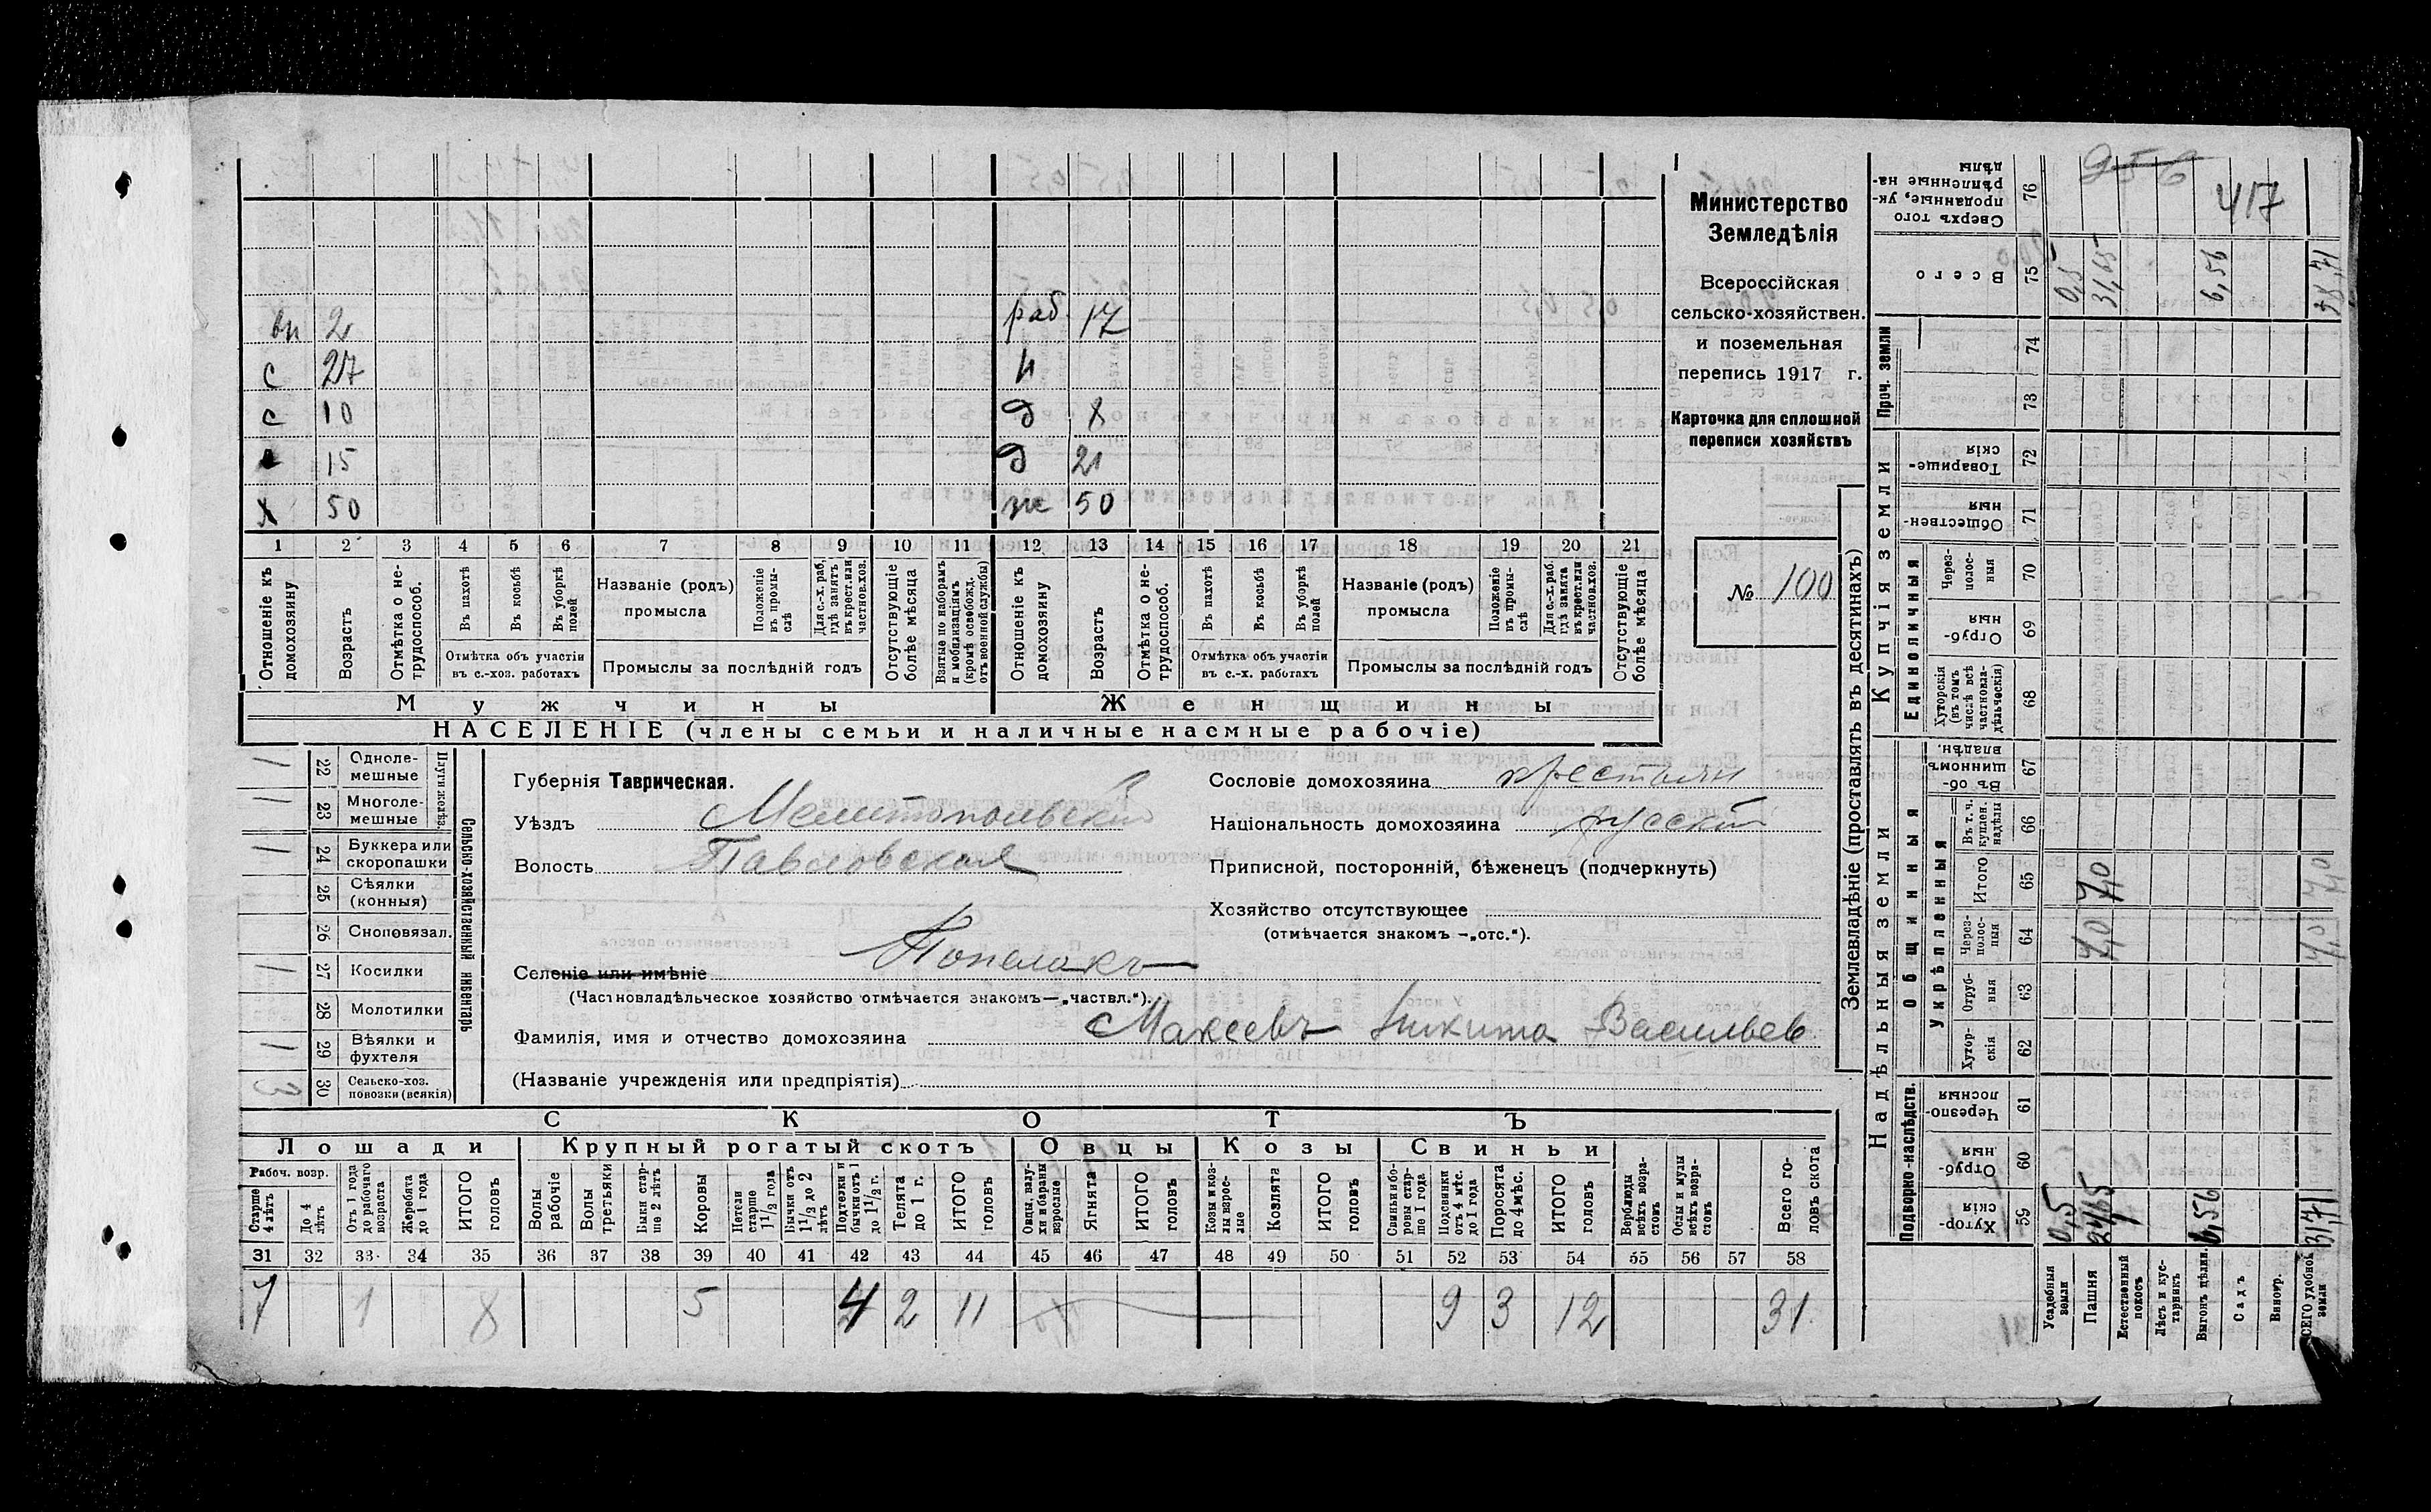 956
417
вн 2 раб. 17
с 27 и
с 10 д 8
15 д 21
х 50 же 50
1 2 3 4 5 6 7 8 9 10 11 12 13 14 15 16 17 18 19 20 21
Отношеніе къ домохозяину
Возрастъ
Отмѣтка о не-трудоспособ.
Въ пахотѣ
Въ косьбѣ
Въ уборкѣ полей
Отмѣтка объ участіи
въ с.-хоз. работахъ
Названіе (родъ)
промысла
Положеніе въ промы-слѣ
Для с.-х. раб. гдѣ занятъ въ крест. или частнов. хоз.
Промыслы за послѣдній годъ
Отсутствующіе болѣе мѣсяца
Взятые по наборамъ и мобилизаціямъ (кромѣ освобожд. отъ военной службы)
Отношеніе къ домохозяину
Возрастъ
Отмѣтка о не-трудоспособ.
Въ пахотѣ
Въ косьбѣ
Въ уборкѣ полей
Отмѣтка объ участіи
въ с.-х. работахъ
Названіе (родъ)
промысла
Положеніе въ промы-слѣ
Для с.-х. раб. гдѣ занята въ крест. или частнов. хоз.
Промыслы за послѣдній годъ
Отсутствующіе болѣе мѣсяца
Мужчины Женщины
НАСЕЛЕНІЕ (члены семьи и наличные наемные рабочіе)
Министерство
Земледѣлія
Всероссійская
сельско-хозяйствен.
и поземельная
перепись 1917 г.
Карточка для сплошной
переписи хозяйствъ
№ 100
1 22 Одноле-мешные
1 23 Многоле-мешные
Плуги желѣз.
1 24 Буккера или скоропашки
25 Сѣялки (конныя)
26 Сноповязал.
1 27 Косилки
28 Молотилки
1 29 Вѣялки и фухтеля
3 30 Сельско-хоз. повозки (всякія)
Сельско-хозяйственный инвентарь
Губернія Таврическая.
Уѣздъ Мелитопольскій
Волость Павловская
Селеніе или имѣніе
(Частновладѣльческое хозяйство отмѣчается знакомъ—„частвл.“).
Фамилія, имя и отчество домохозяина Макеевъ Никита Васильев
(Названіе учрежденія или предпріятія)
Сословіе домохозяина крестьян
Національность домохозяина русскій
Приписной, посторонній, бѣженец (подчеркнуть)
Хозяйство отсутствующее
(отмѣчается знакомъ —„отс.“).
СКОТЪ
Лошади Крупный рогатый скотъ Овцы Козы Свиньи
Рабоч. возр.
Старше 4 лѣтъ
До 4 лѣтъ
Отъ 1 года до рабочаго возраста
Жеребята до 1 года
ИТОГО головъ
Волы рабочіе
Волы третьяки
Быки стар-ше 2 лѣтъ
Коровы
Нетели старше 1½ года
Бычки отъ 1½ до 2 лѣтъ
Подтелки и бычки отъ 1 до 1½ г.
Телята до 1 г.
ИТОГО головъ
Овцы, валу-хи и бараны взрослые
Ягнята
ИТОГО головъ
Козы и коз-лы взрос-лые
Козлята
ИТОГО головъ
Свиньи и бо-ровы стар-ше 1 года
Подсвинки отъ 4 мѣс. до 1 года
Поросята до 4 мѣс.
ИТОГО головъ
Верблюды всѣхъ возра-стовъ
Ослы и мулы всѣхъ возра-стовъ
Всего го-ловъ скота
31 32 33 34 35 36 37 38 39 40 41 42 43 44 45 46 47 48 49 50 51 52 53 54 55 56 57 58
7 1 8 5 4 2 11 9 3 12 31
Землевладѣніе (проставлять въ десятинахъ)
Надѣльныя земли Купчія земли Проч. земли
Подворно-наслѣдств. Общинныя Единоличныя
Укрѣпленныя
Сверхъ того проданные, ук-рѣпленные на-дѣлы 76
Всего 75 0,5 31,65 6,56 38,71
74
73
Товарище-скія 72
Обществен-ныя 71
Через-полос-ныя 70
Отруб-ныя 69
Хуторскія (въ томъ числѣ всѣ частновла-дѣльческія) 68
Въ об-щинномъ владѣн. 67
Въ т. ч. куплен. надѣлы 66
Итого 65 7,0 7,0
Через-полос-ныя 64 7,0 7,0
Отруб-ныя 63
Хутор-скія 62
Черезпо-лосныя 61
Отруб-ныя 60
Хутор-скія 59 0,5 24,65 6,56 31,71
Усадебныя земли
Пашня
Естественный покосъ
Лѣсъ и кус-тарникъ
Выгонъ дѣлин.
Садъ
Виногр.
ВСЕГО удобной земли